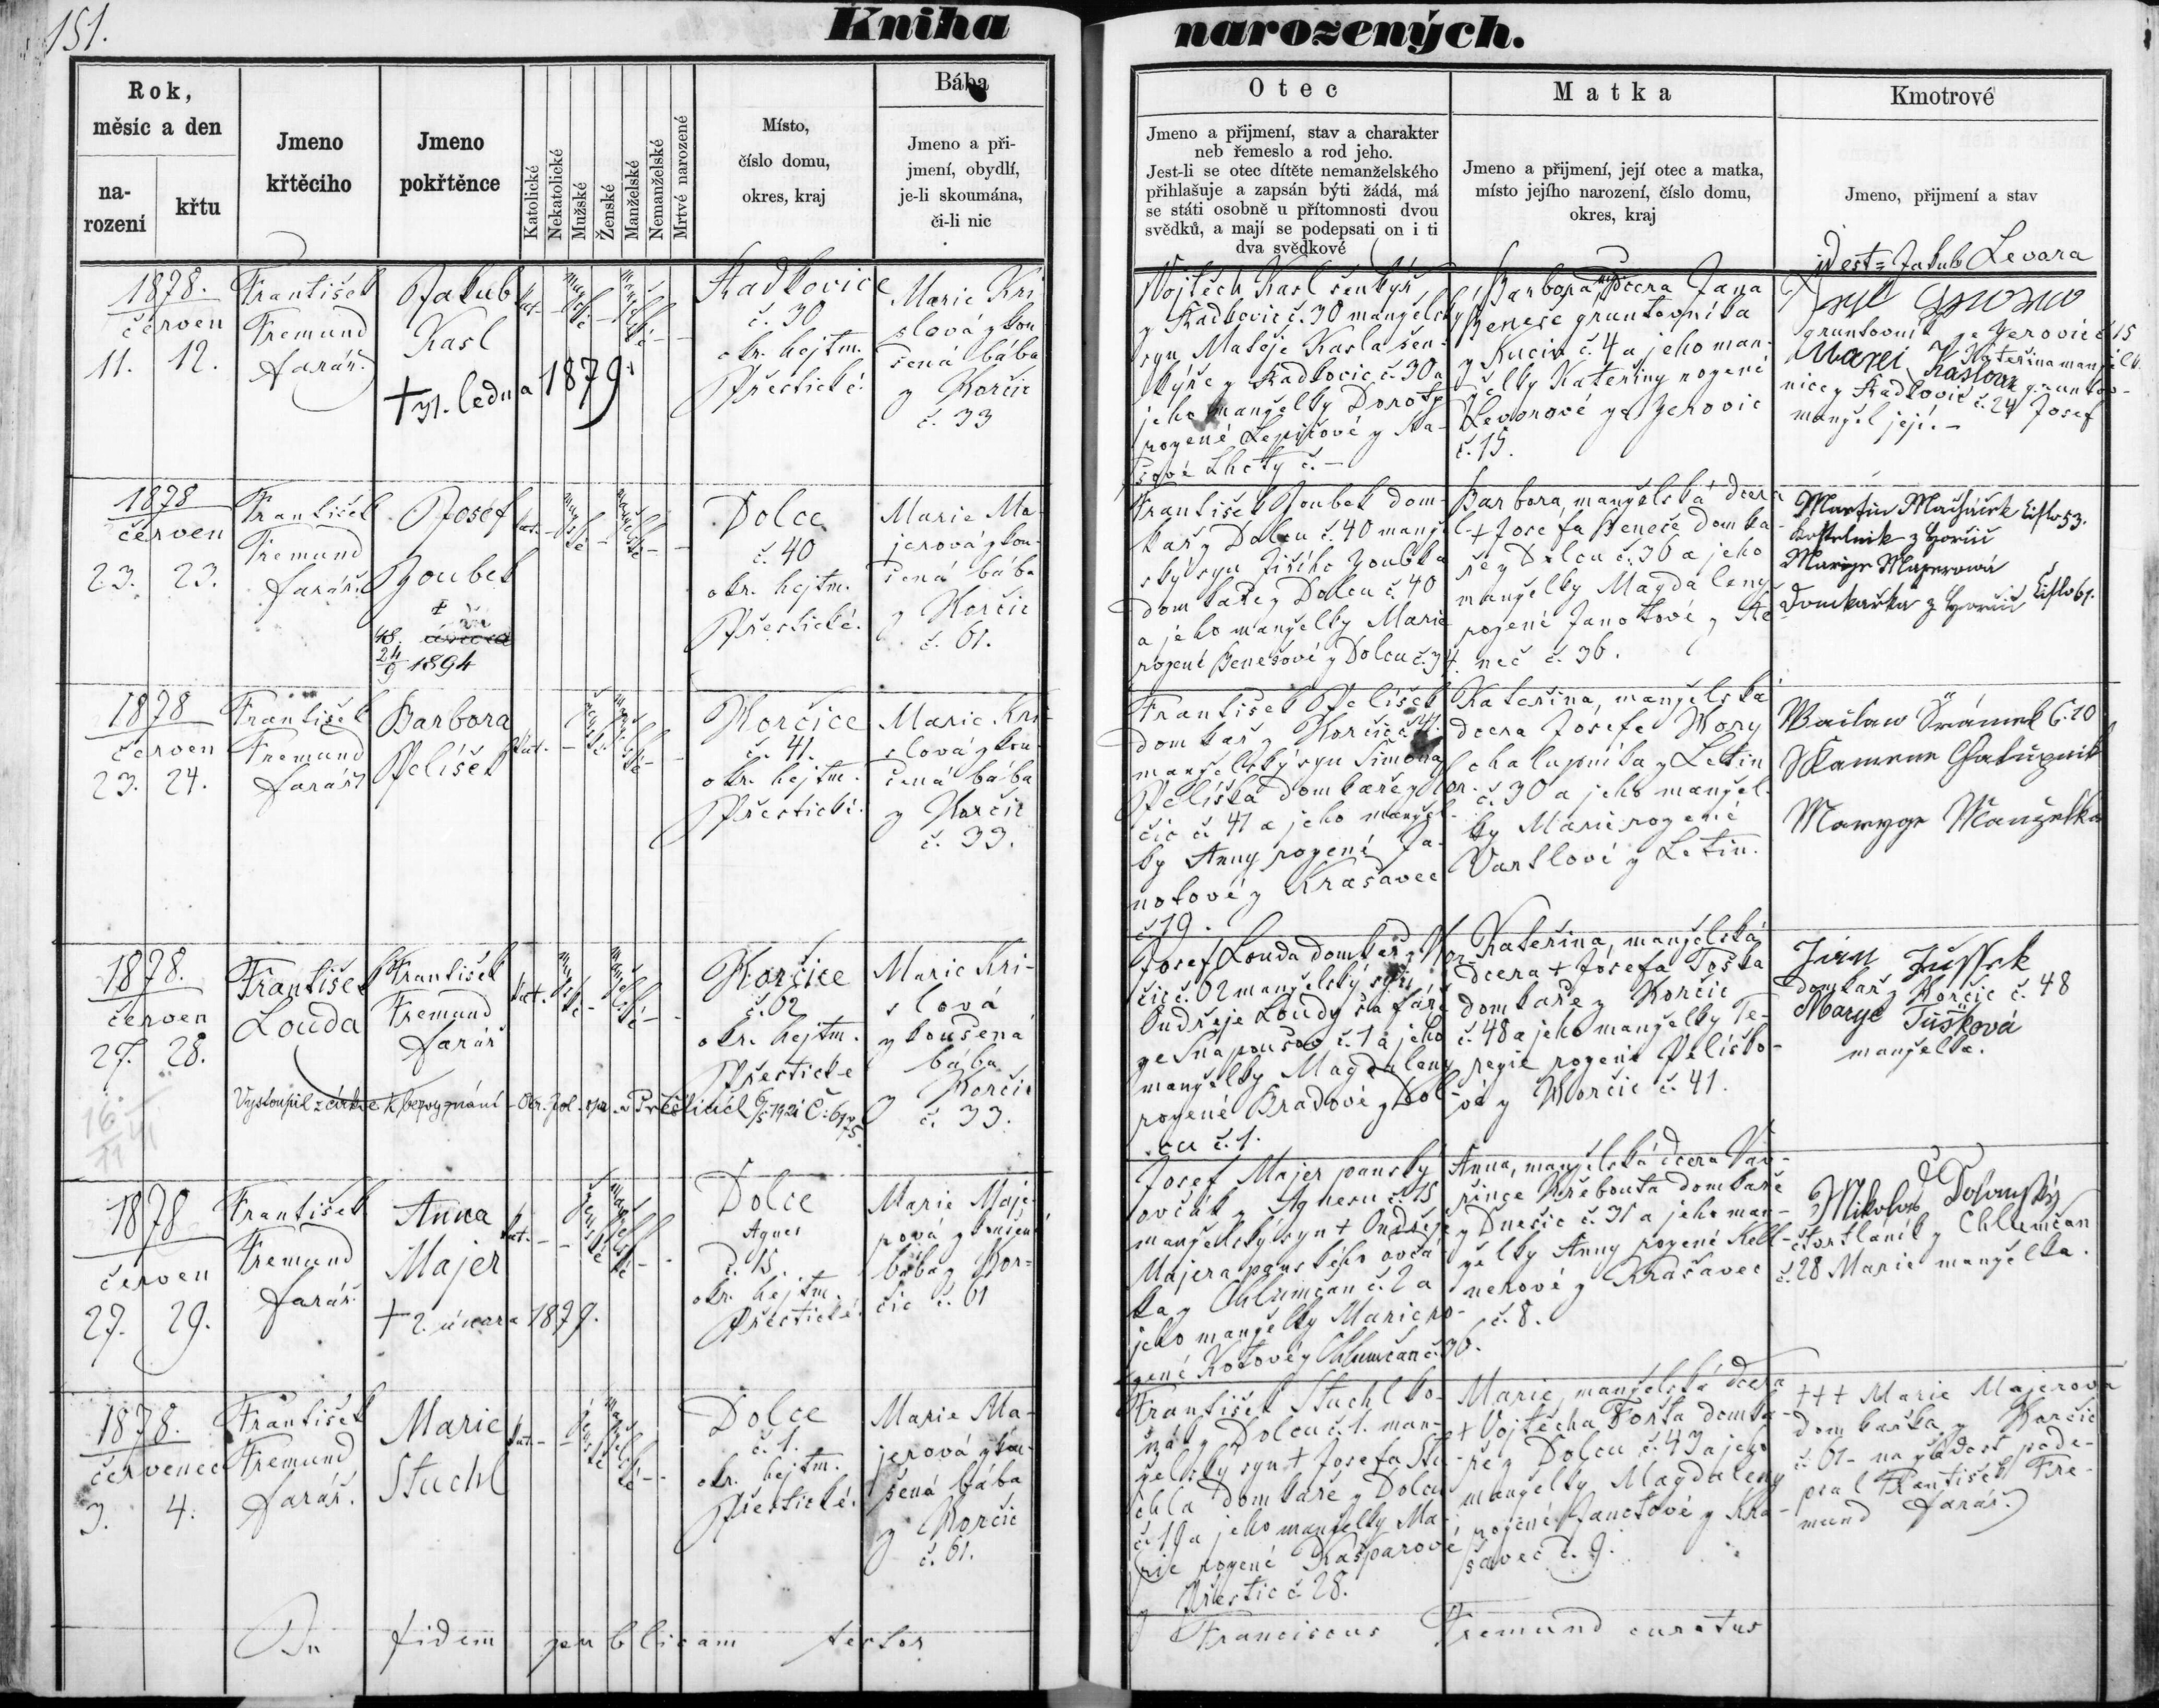 151.
Kniha narozených.
Rok,
měsíc a den
na-
rození
křtu
Jmeno
křtěcího
Jmeno
pokřtěnce
Katolické
Nekatolické
Mužské
Ženské
Manželské
Nemanželské
Mrtvé narozené
Místo,
číslo domu,
okres, kraj
Bába
Jmeno a při-
jmení, obydlí,
je-li skoumána,
či-li nic
Otec
Jmeno a přijmení, stav a charakter
neb řemeslo a rod jeho.
Jest-li se otec dítěte nemanželského
přihlašuje a zapsán býti žádá, má
se státi osobně u přítomnosti dvou
svědků, a mají se podepsati on i ti
dva svědkové
Matka
Jmeno a přijmení, její otec a matka,
místo jejího narození, číslo domu,
okres, kraj
Kmotrové
Jmeno, přijmení a stav
1878.
červen
11. 12.
František
Fremund
farář.
Jakub
Kasl
† 31. ledna 1879.
kat.
mužské
manželské
Radkovice
č. 30
okr. hejtm.
Přestické.
Marie Kri-
slová zkou-
šená bába
z Horčic
č. 33
Vojtěch Kasl šenkýř
z Radkovic č. 30 manželský
syn Matěje Kasla šen-
kýře z Radkovic č. 30 a
jeho manželky Doroty
rozené Lepičové z
Lhoty č. –
Barbora dcera Jana
Beneše gruntovníka
z Kucin č. 4 a jeho man-
želky Kateřiny rozené
Levorové ze Zerovic
č. 15.
jest = Jakub Levora
gruntovník ze Zerovic č 15
Kateřina manželk.
Kaslova gruntov-
nice z Radkovic č. 24 Josef
manžel její. –
1878
červen
23. 23.
František
Fremund
farář.
Josef
Zoubek
24/9 1894
kat.
mužské
manželské
Dolce
č. 40
okr. hejtm.
Přestické.
Marie Ma-
jerová zkou-
šená bába
z Horčic
č. 61.
František Zoubek dom-
kář z Dolcu č. 40 manžel-
ský syn Jiřího Zoubka
domkaře z Dolcu č. 40
a jeho manželky Marie
rozené Benešové z Dolcu č. 34.
Barbora, manželská dcera
† Josefa Beneše domka-
ře z Dolcu č. 36 a jeho
manželky Magdaleny
rozené Janotové z Ře-
neč č. 36.
Martin Číslo 53.
kostelnik z Horčic
Marye Majerowá
Domkařka z Horčic Číslo 61.
1878
červen
23. 24.
František
Fremund
farář
Barbora
Pelíšek
kat.
ženské
manželské
Horčice
č. 41.
okr. hejtm.
Přestické.
Marie Kri-
slová zkou-
šená bába
z Horčic
č. 33.
František Pelíšek
domkař z Horčic č. 41.
manželský syn Šimona
Pelíška domkaře z Hor-
čic č. 41 a jeho manžel-
ky Anny rozené Ja-
notové z Krašavec
č. 19.
Kateřina, manželská
dcera Josefa Wory
chalupníka z Letin
č. 30 a jeho manžel-
ky Marie rozené
Vartlové z Letin.
Wáclaw Šrámek č. 10
Marye Manželka
1878.
červen
27. 28.
František
Louda
František
Fremund
farář
kat.
mužské
manželské
Horčice
č. 62
okr. hejtm.
Přestické
Marie Kri-
slová
zkoušená
bába
z Horčic
č. 33.
Vystoupil z církve k bezvyznání - Okr. pol. spr. v Přešticích 9/5 1921 Č: 6975.
16./11 41
Josef Louda domkář z Hor-
čic č. 62 manželský syn
Ondřeje Loudy šafáře
ze Snopoušov č. 1 a jeho
manželky Magdaleny
rozené Bradové z Dol-
cu č. 1.
Kateřina, manželská
dcera † Josefa Toška
domkaře z Horčic
č. 48 a jeho manželky Te-
rezie rozené Pelíško-
vé z Horčic č. 41.
Jan
domkář z Horčic č. 48
Marye Tüšková
manželka.
1878
červen
27. 29.
František
Fremund
farář.
Anna
Majer
† 2. února 1879.
kat.
ženské
manželské
Dolce
Agnes
č. 15.
okr. hejtm.
Přestické.
Marie Maje-
rová zkoušená
bába z Hor-
čic č. 61
Josef Majer panský
ovčák z Agnesu č. 15
manželský syn † Ondřeje
Majera panského ovčá-
ka z Chlumčan č. 2 a
jeho manželky Marie ro-
zené Kotové z Chlumčan č. 36.
Anna, manželská dcera Vav-
řince Křebouta domkaře
z Dnešic č. 31 a jeho man-
želky Anny rozené Kell-
nerové z Krašavec
č. 8.
Mikolas Dolanský
čtvrtláník z Chlumčan
č. 28 Marie manželka.
1878.
červenec
3. 4.
František
Fremund
farář.
Marie
Stuchl
kat.
ženské
manželské
Dolce
č. 1.
okr. hejtm.
Přestické.
Marie Ma-
jerová zkou-
šená bába
z Horčic
č. 61.
František Stuchl ko-
z Dolcu č. 1. man-
želský syn † Josefa Stu-
chla domkaře z Dolcu
č. 19 a jeho manželky Ma-
rie rozené Kašparové
z Přestic č 28.
Marie, manželská dcera
† Vojtěcha Fošta domka-
ře z Dolcu č. 43 a jeho
manželky Magdaleny
rozené Janotové z Kra-
šavec č. 9.
+++ Marie Majerová
domkařka z Horčic
č. 61 - na žádost pode-
psal František Fre-
mund farář.)
In fidem publicam testor
Franciscus Fremund curatus